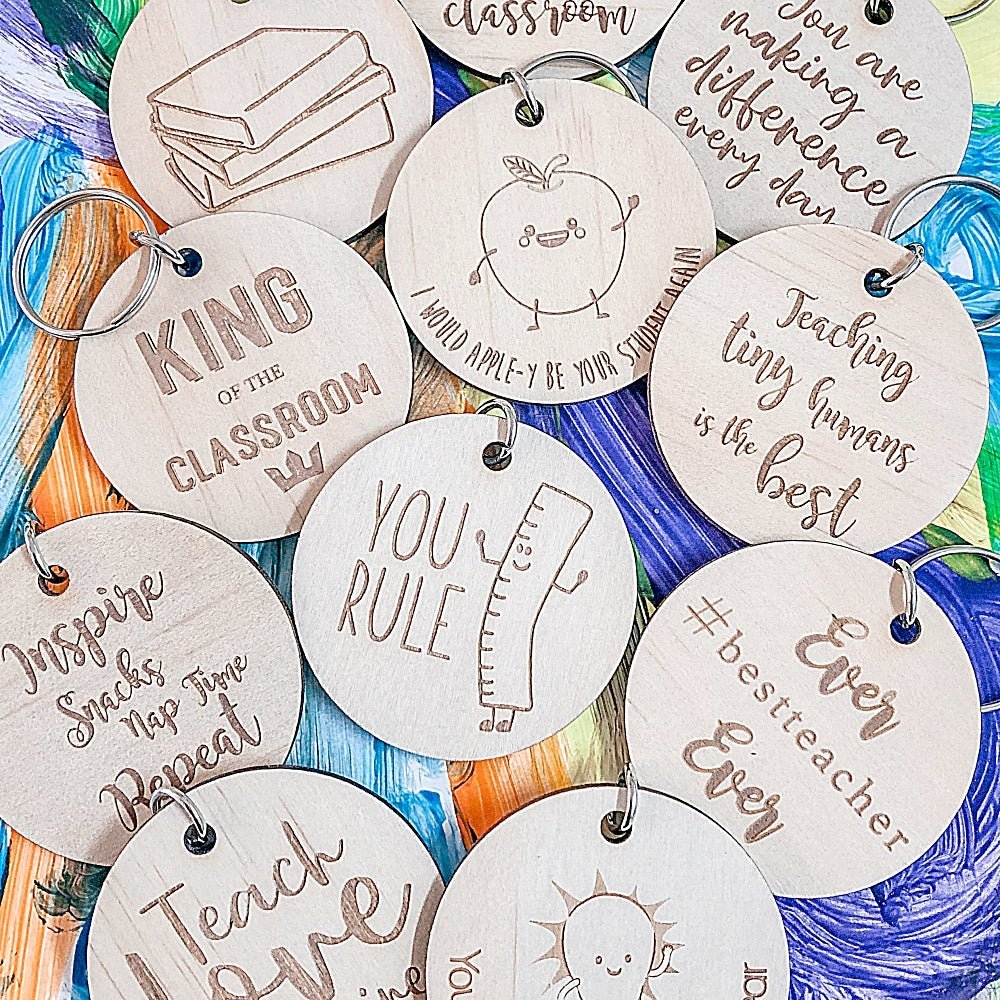 classroom
You are
making a
difference
every day
I WOULD APPLE-Y BE YOUR STUDENT AGAIN
KING
OF THE
CLASSROOM
Teaching
tiny humans
is the
best
YOU
RULE
Inspire
Snacks
Nap Time
Repeat
Ever
#bestteacher
Ever
Teach
Love